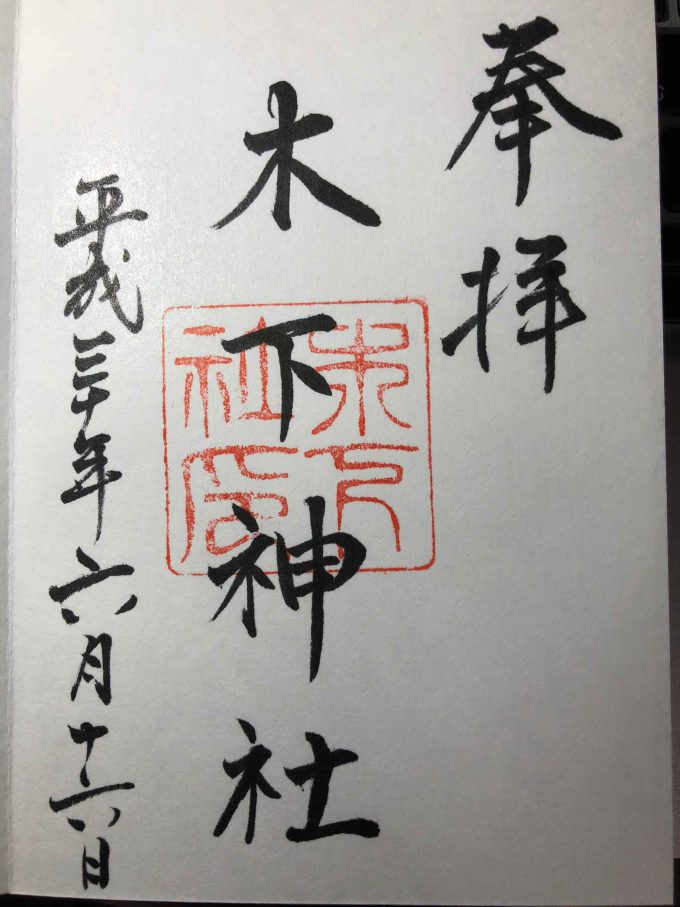 奉拝
木下神社
木下社印
平成三十年六月十六日